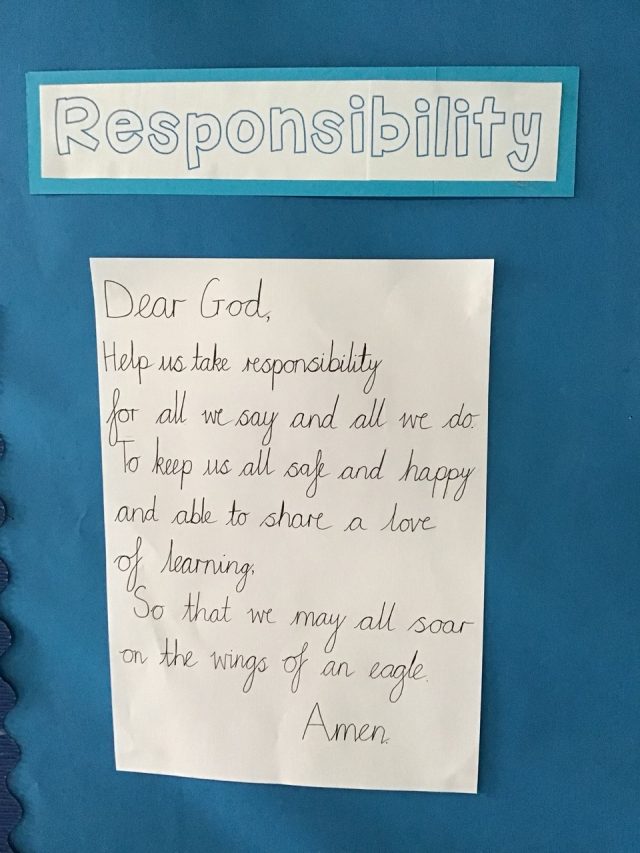 Responsibility
Dear God,
Help us take responsibility
for all we say and all we do.
To keep us all safe and happy
and able to share a love
of learning,
So that we may all soar
on the wings of an eagle.
Amen.